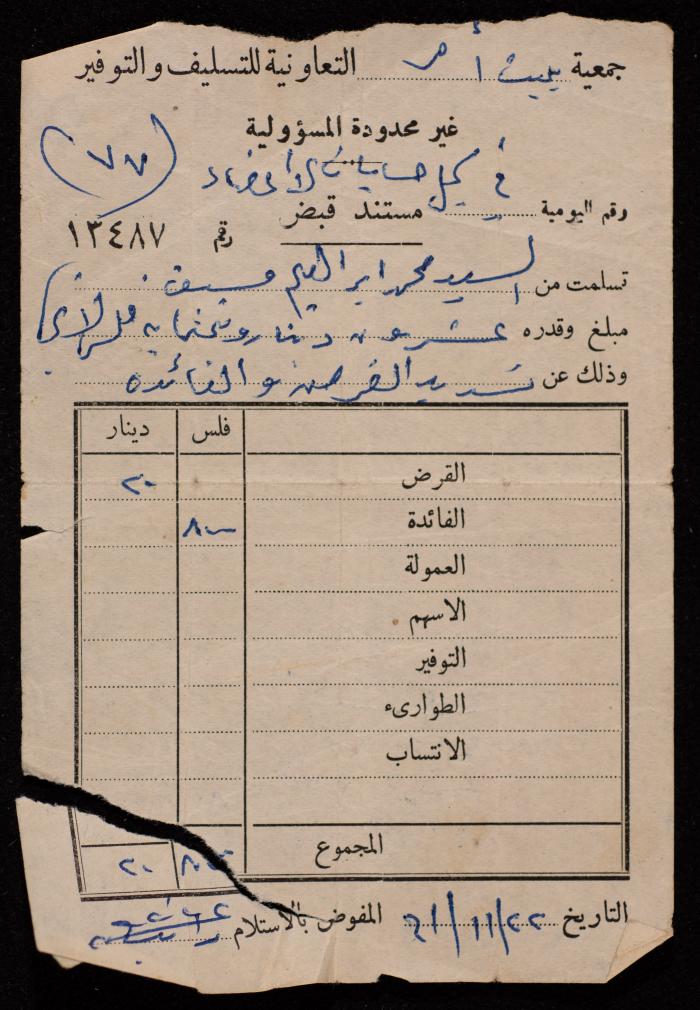 جمعية بيت أمر التعاونية للتسليف والتوفير
غير محدودة المسؤولية
(٧٧)
رقم اليومية في سجل حسابات الأعضاء
مستند قبض
رقم ١٣٤٨٧
تسلمت من السيد محمد ابراهيم
مبلغ وقدره عشرون دينار وثمنمايه فلس لاغير
وذلك عن تسديد القرض والفائده
فلس دينار
القرض ٢٠
الفائدة ٨٠٠
العمولة
الاسهم
التوفير
الطوارىء
الانتساب
المجموع ٨٠٠ ٢٠
التاريخ ٢٢/١١/٦١ المفوض بالاستلام